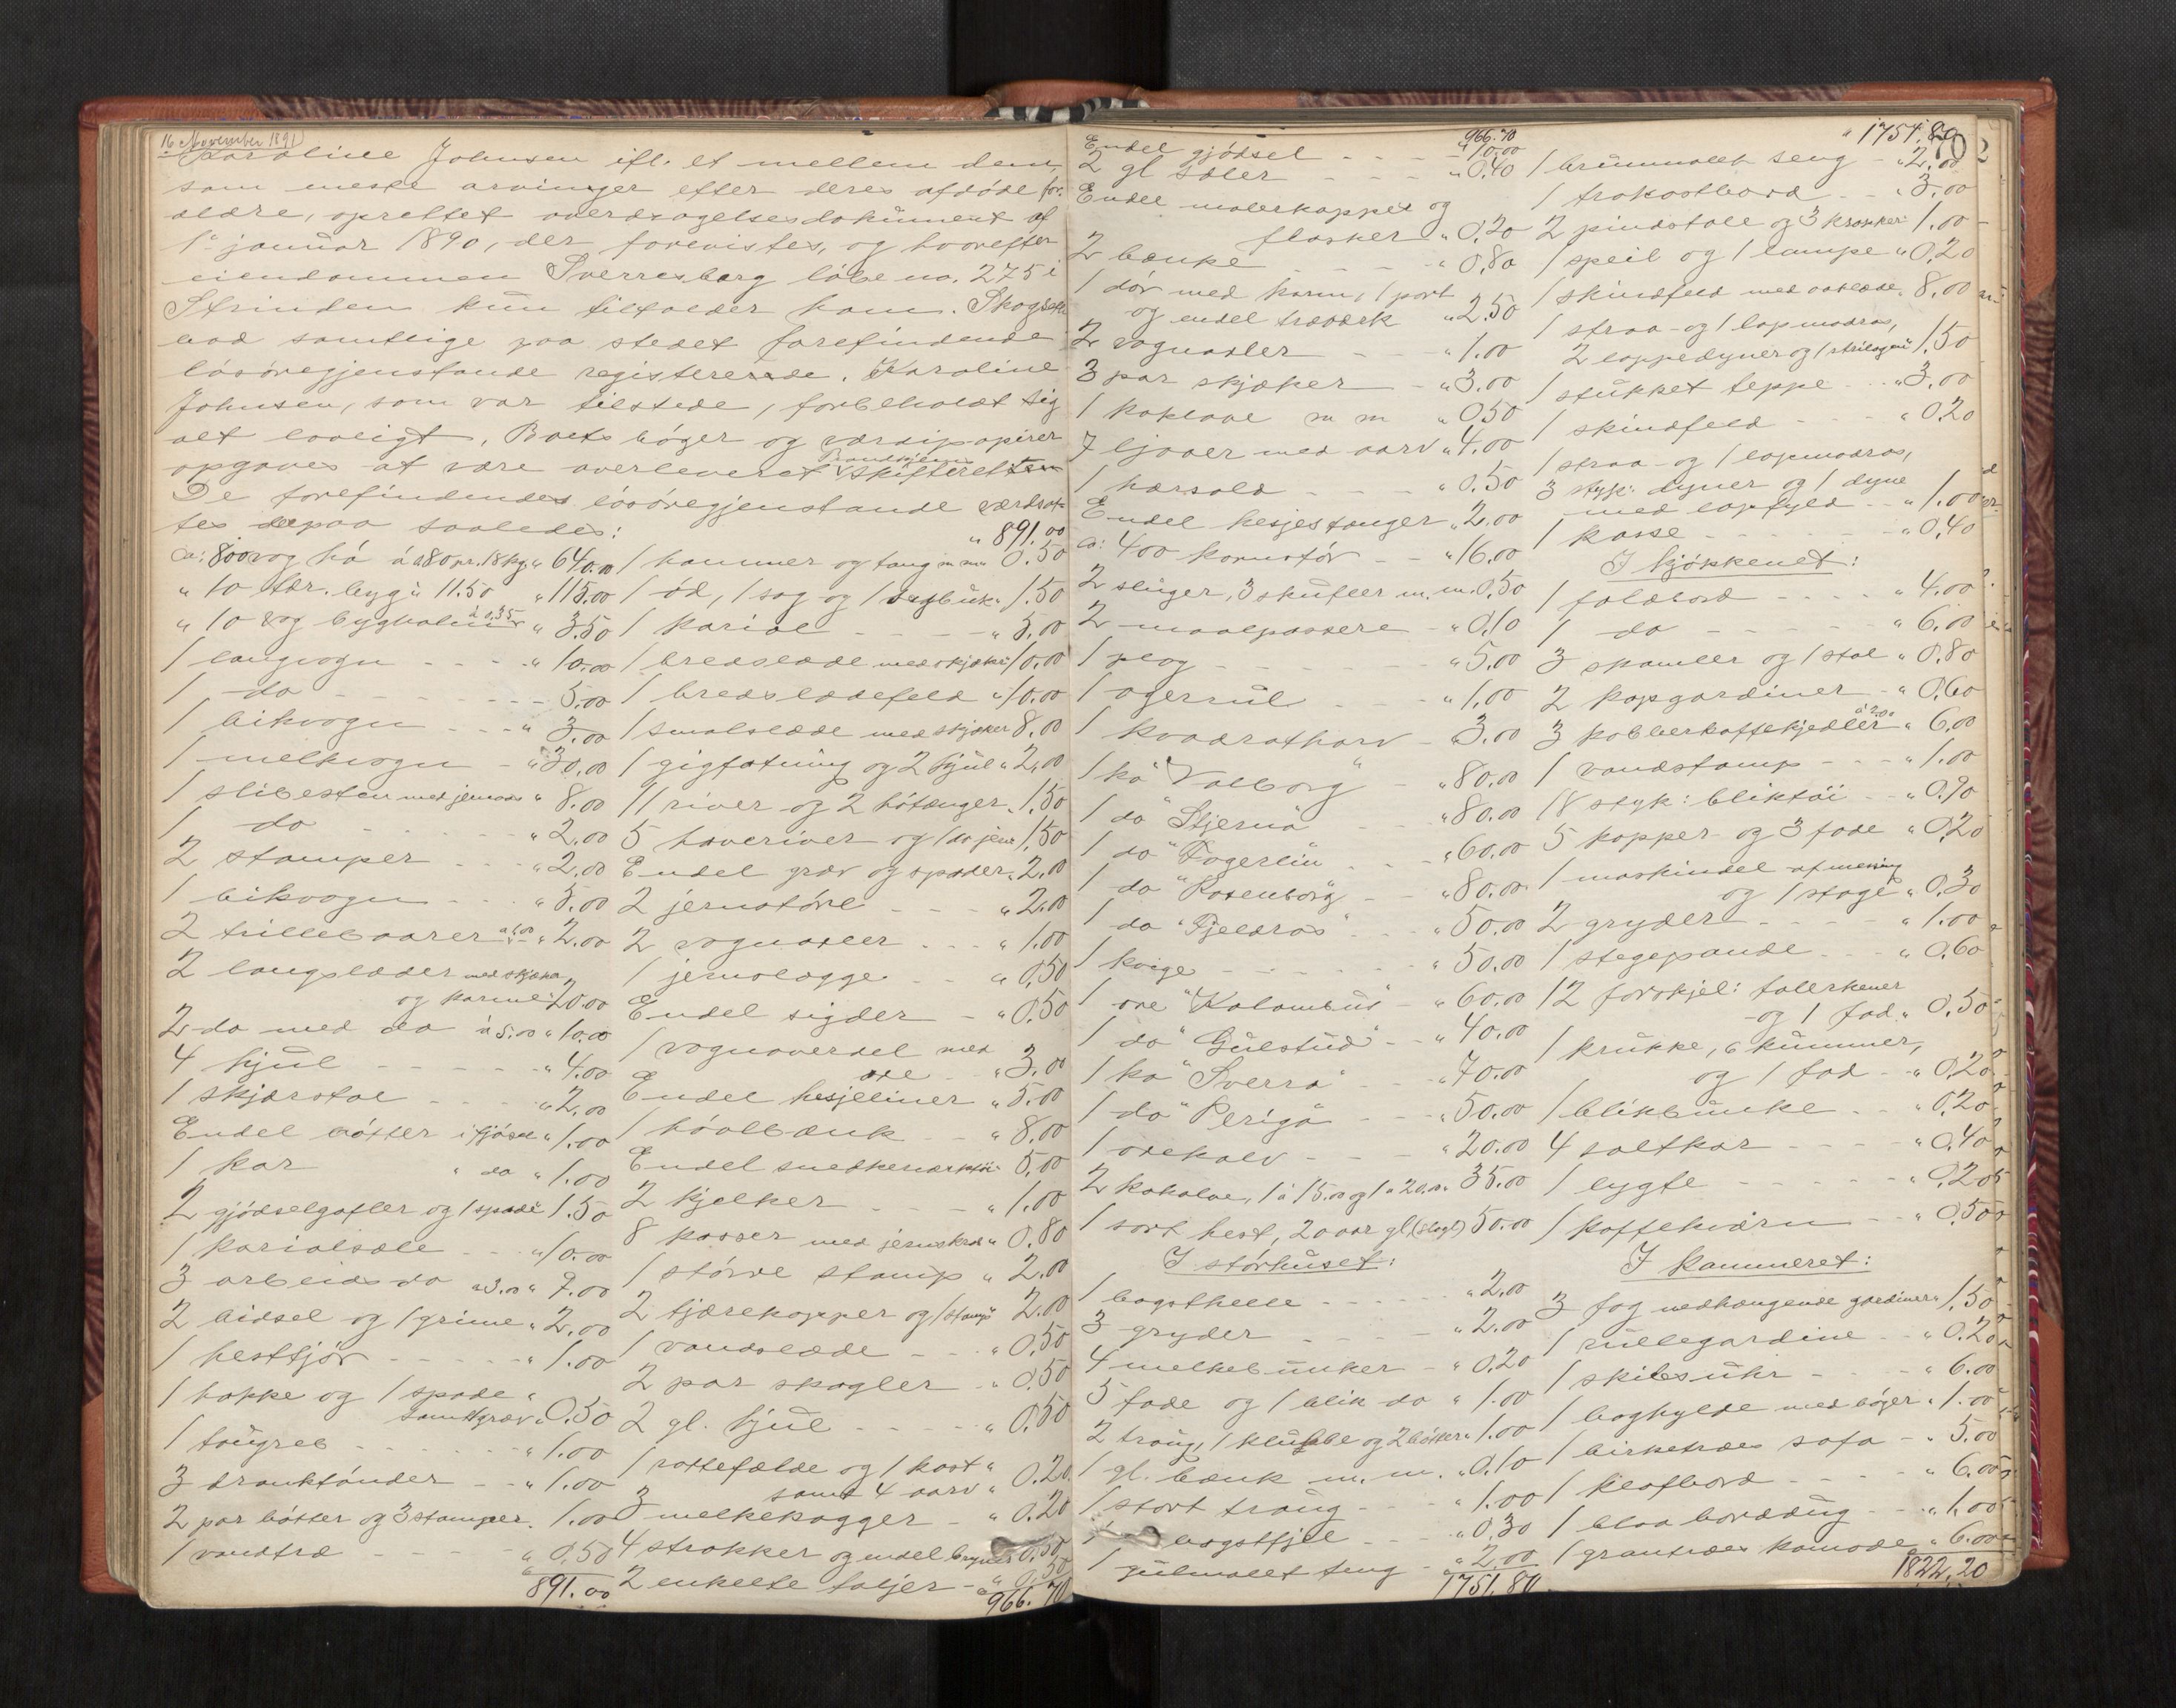 16 November 1891
Karoline Johnsen ifl. et mellem dem,
som neste arvinger efter deres afdøde for-
ældre, oprettet overdragelsesdokument af
1ste januar 1890, der forevistes, og hvorefter
eiendommen Sverresborg løbe no. 275 i
Strinden kun tilfalder ham.
bad samtlige paa stedet forefindende
løsøregjenstande registrerede. Karoline
Johnsen, som var tilstede, forbeholdt sig
alt lovligt. Boets bøger og værdipapirer
opgaves at være overleveret skifteretten
De forefindendes løsøregjenstande værdsat-
tes derpaa saaledes:
ca: 800 vog hø á 0.80 pr. 18 kg. " 640.00
" 10 tdr. byg á 11.50 " 115.00
" 10 vog byghalm á 0.35 " 3.50
1 langvogn " 10.00
1 do 5.00
1 bikvogn " 3.00
1 melkvogn " 30.00
1 slibesten med jernaas " 8.00
1 do " 2.00
2 stamper " 2.00
1 bikvogn " 5.00
2 trillebaarer á 1.00 " 2.00
2 langslæder med skjæker
og karme " 20.00
2 do med do á 5.00 " 10.00
4 hjul " 4.00
1 skjærstol " 2.00
Endel bøtter i fjøset " 1.00
1 kar " do " 1.00
2 gjødselgafler og 1 spade " 1.50
1 kariolsæle " 10.00
3 arbeids do á 3.00 " 9.00
2 bidsel og 1 grime " 2.00
1 hesttjor " 1.00
1 hakke og 1 spade "
samt græv " 0.50
1 tougreb " 1.00
3 dranktønder " 1.00
2 par bøtter og 3 stamper " 1.00
1 vandtræ " 0.50
891.00
" 891.00
1 hammer og tang m m " 0.50
1 ød, 1 sag og 1 sagbuk " 1.50
1 kariol " 5.00
1 bredslæde med skjæker " 10.00
1 bredslædefeld " 10.00
1 smalslæde med skjæker 8.00
1 gigfatning og 2 hjul " 2.00
11 river og 2 høtænger " 1.50
5 haveriver og 1 do jern " 1.50
Endel græv og spader " 2.00
2 jernstøre " 2.00
2 vognaxler " 1.00
1 jernslægge " 0.50
Endel sigder " 0.50
1 vognoverdel med
" 3.00
Endel hesjeliner " 5.00
1 høvlbænk " 8.00
Endel snedkerværktøi " 5.00
2 kjelker " 1.00
8 kasser med jernskrab " 0.80
1 større stamp " 2.00
2 tjærekopper og 1 stamp " 2.00
1 vandslæde " 0.50
2 par skagler " 0.50
2 gl. hjul " 0.50
1 rottefælde og 1 kost "
samt 4 aarv " 0.20
3 melkekagger " 0.20
4 strokker og endel bryner 0.50
2 enkelte taljer " 0.50
966.70
966.70
Endel gjødsel " 10.00
2 gl sæler " 0.40
Endel malerkopper og
flasker " 0.20
2 bænke " 0.80
1 dør med karm, 1 port
og endel træværk " 2.50
2 vognaxler " 1.00
3 par skjæker " 3.00
1 koklave m m " 0.50
7 ljaaer med aarv " 4.00
1 harsold " 0.50
Endel hesjestænger " 2.00
ca: 400 kornstør " 16.00
2 sliger, 3 skufler m. m. 0.50
2 maalpassere " 0.10
1 plog " 5.00
1 agerrul " 1.00
1 kvadratharv " 3.00
1 ko "Valborg" " 80.00
1 do "Stjerna" " 80.00
1 do "Fagerlin" " 60.00
1 do "Rosenborg" " 80.00
1 do "Fjeldros" " 50.00
1 kvige " 50.00
1 oxe "Kolumbus" " 60.00
1 do "Gulstud" " 40.00
1 ko "Sverra" " 70.00
1 do "Periga" " 50.00
1 oxekalv " 20.00
2 kokalve, 1 á 15.00 og 1 á 20.00 " 35.00
1 sort hest, 20 aar gl. 50.00
I størhuset:
1 bagsthelle " 2.00
3 gryder " 2.00
4 melkebunker " 0.20
5 fade og 1 blik do " 1.00
2 traug, 1 klubbe og 2 bøtter " 1.00
1 gl. bænk m. m. " 0.10
1 stort traug " 1.00
1 bagstfjel " 0.30
1 gulmalt seng " 2.00
1751.80
" 1751.80
1 brunmalet seng " 2.00
1 frokostbord " 3.00
2 pindstole og 3 krakker " 1.00
1 speil og 1 lampe " 0.20
1 skindfeld med 8.00
1 straa- og 1 lapmadras,
2 lappedyner og 1 1.50
1 stukket teppe " 3.00
1 skindfeld " 0.20
1 straa- og 1 lapmadras,
3 styk: dyner og 1 dyne
med lapfyld " 1.00
1 kasse " 0.40
I kjøkkenet:
1 foldebord " 4.00
1 do " 6.00
3 skamler og 1 stol " 0.80
2 kapgardiner " 0.60
3 kobberkaffekjedler á 2.00 " 6.00
1 vandstamp " 1.00
18 styk: bliktøi " 0.90
5 kopper og 3 fade " 0.20
1 maskindel af messing
og 1 stage " 0.30
2 gryder " 1.00
1 stegepande " 0.60
12 forskjel: tallerkener
og 1 fad " 0.50
1 krukke, 6 kummer,
og 1 fad " 0.20
1 blikbunke " 0.20
4 saltkar " 0.40
1 lygte " 0.20
1 kaffekværn " 0.50
I kammeret:
3 fag nedhængende gardiner " 1.50
1 rullegardine " 0.20
1 skibsuhr " 6.00
1 boghylde med bøger " 1.00
1 birketræs sofa " 5.00
1 klafbord " 6.00
1 blaa borddug " 1.00
1 grantræs komode " 6.00
1822.20